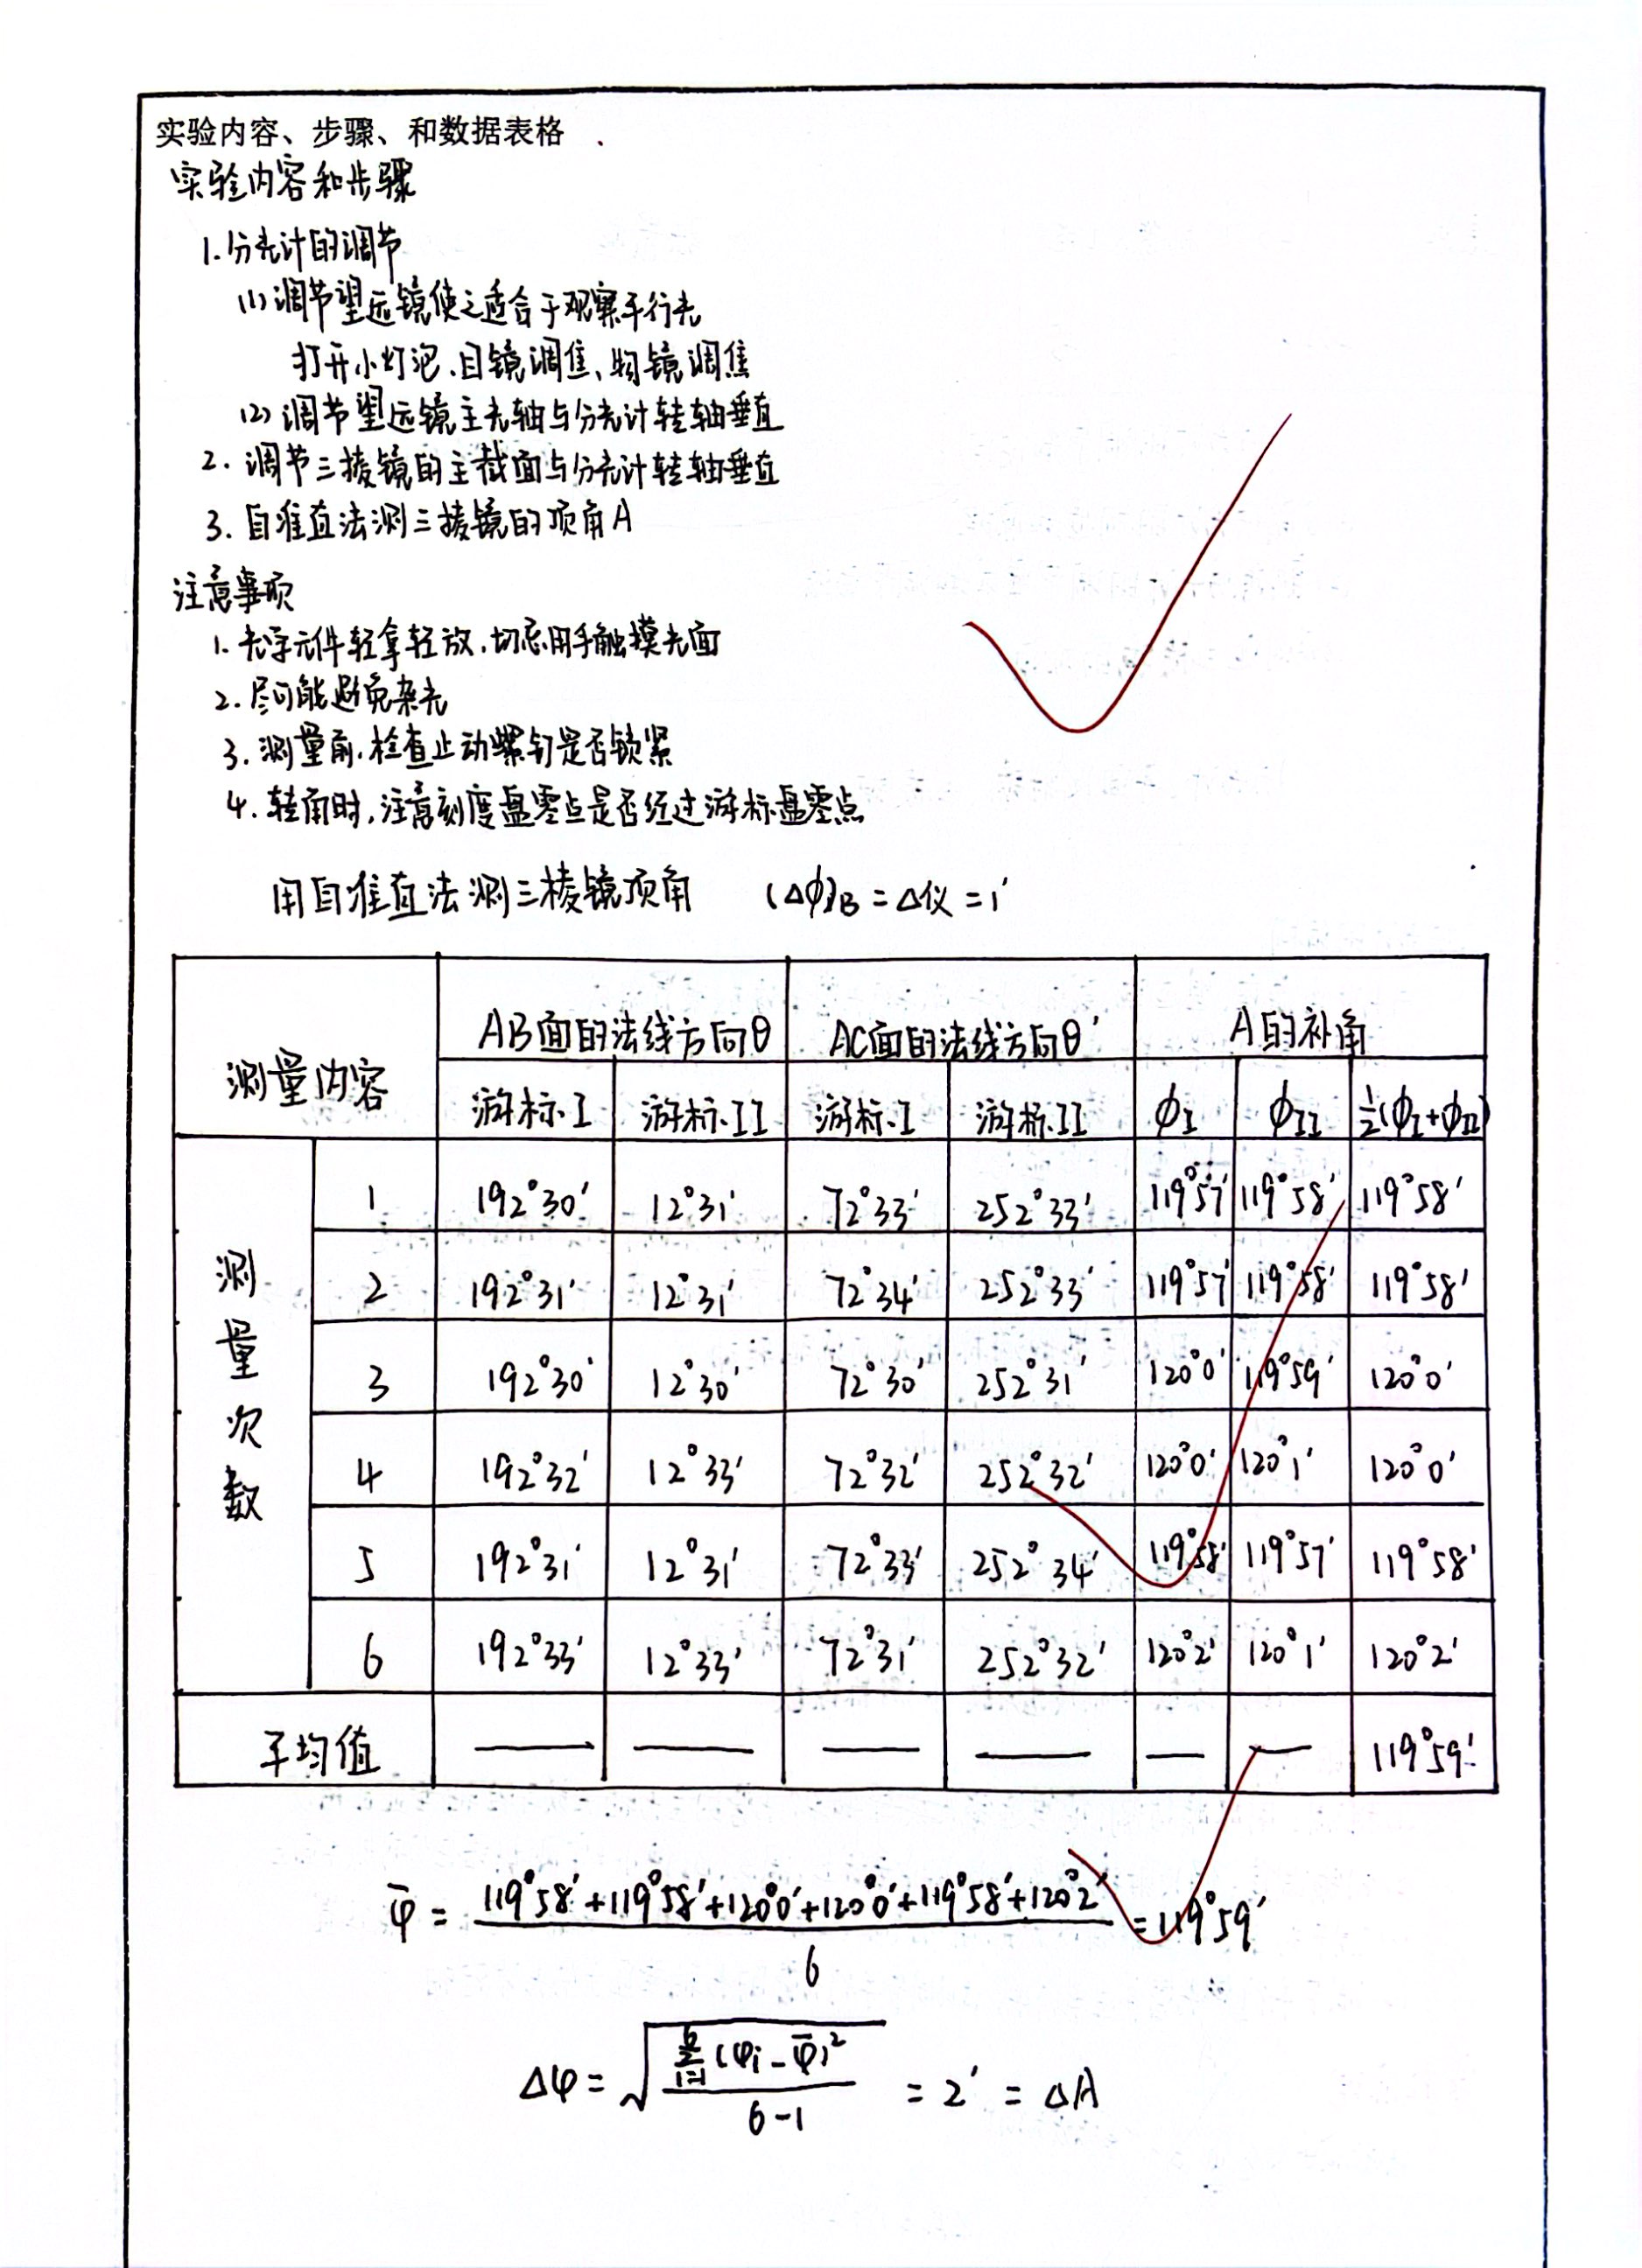 实验内容、步骤、和数据表格
实验内容和步骤
1.分光计的调节
(1)调节望远镜使之适合于观察平行光
打开小灯泡、目镜调焦、物镜调焦
(2)调节望远镜主光轴与分光计转轴垂直
2.调节三棱镜的主截面与分光计转轴垂直
3.自准直法测三棱镜的顶角A
注意事项
1.光学元件轻拿轻放,切忌用手触摸光面
2.尽可能避免杂光
3.测量前,检查止动螺钉是否锁紧
4.转角时,注意刻度盘零点是否经过游标盘零点
用自准直法测三棱镜顶角 (Δϕ)B = Δ仪 = 1′
测量内容 AB面的法线方向θ AC面的法线方向θ′ A的补角
游标I 游标II 游标I 游标II ϕI ϕII ½(ϕI+ϕII)
测量次数
1 192°30′ 12°31′ 72°33′ 252°33′ 119°57′ 119°58′ 119°58′
2 192°31′ 12°31′ 72°34′ 252°33′ 119°57′ 119°58′ 119°58′
3 192°30′ 12°30′ 72°30′ 252°31′ 120°0′ 119°59′ 120°0′
4 192°32′ 12°33′ 72°32′ 252°32′ 120°0′ 120°1′ 120°0′
5 192°31′ 12°31′ 72°33′ 252°34′ 119°58′ 119°57′ 119°58′
6 192°33′ 12°33′ 72°31′ 252°32′ 120°2′ 120°1′ 120°2′
平均值 — — — — — — 119°59′
φ̄ = (119°58′+119°58′+120°0′+120°0′+119°58′+120°2′)/6 = 119°59′
Δφ = √(∑(i=1→6)(φi-φ̄)²/(6-1)) = 2′ = ΔA